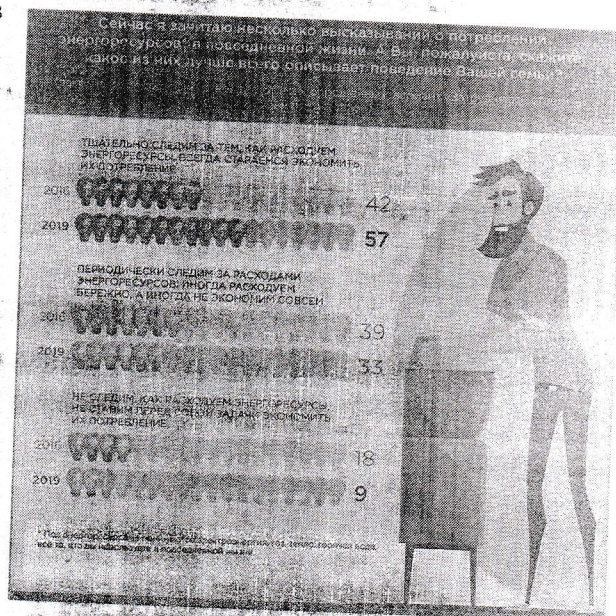 Сейчас я зачитаю несколько высказываний о потреблении
энергоресурсов* в повседневной жизни. А Вы, пожалуйста, скажите,
какое из них лучше всего описывает поведение Вашей семьи?
ТЩАТЕЛЬНО СЛЕДИМ ЗА ТЕМ, КАК РАСХОДУЕМ
ЭНЕРГОРЕСУРСЫ, ВСЕГДА СТАРАЕМСЯ ЭКОНОМИТЬ
ИХ ПОТРЕБЛЕНИЕ
2016 42
2019 57
ПЕРИОДИЧЕСКИ СЛЕДИМ ЗА РАСХОДАМИ
ЭНЕРГОРЕСУРСОВ: ИНОГДА РАСХОДУЕМ
БЕРЕЖНО, А ИНОГДА НЕ ЭКОНОМИМ СОВСЕМ
2016 39
2019 33
НЕ СЛЕДИМ, КАК РАСХОДУЕМ ЭНЕРГОРЕСУРСЫ,
НЕ СТАВИМ ПЕРЕД СОБОЙ ЗАДАЧИ ЭКОНОМИТЬ
ИХ ПОТРЕБЛЕНИЕ
2016 18
2019 9
* Под энергоресурсами электроэнергия, газ, тепло, горячая вода,
всё то, что вы используете в повседневной жизни